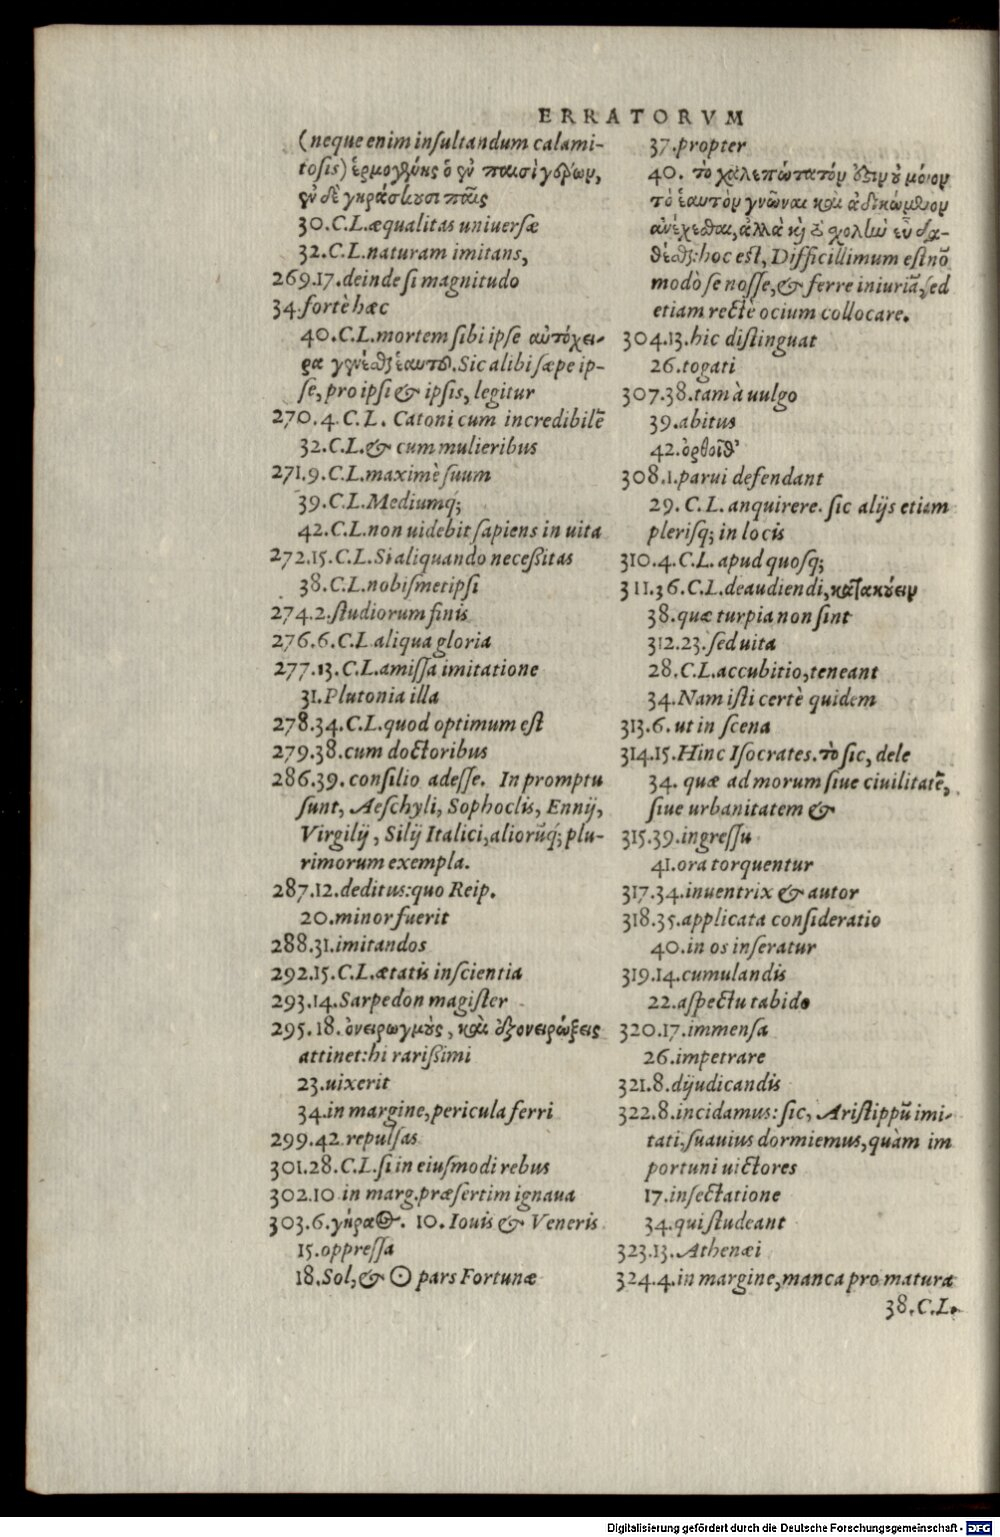 ERRATORVM
(neque enim inſultandum calami-
toſis) ἑρμογένης ὁ ἐν παισὶ γέρων,
ἐν δὲ γηράσκουσι παῖς
30. C.L. æqualitas uniuerſæ
32. C.L. naturam imitans,
269.17. deinde ſi magnitudo
34. fortè hæc
40. C.L. mortem ſibi ipſe αὐτόχει-
ρα γενέσθαι ἑαυτοῦ. Sic alibi ſæpe ip-
ſe, pro ipſi & ipſis, legitur
270.4. C.L. Catoni cum incredibilē
32. C.L. & cum mulieribus
271.9. C.L. maximè ſuum
39. C.L. Mediumq́;
42. C.L. non uidebit ſapiens in uita
272.15. C.L. Si aliquando neceßitas
38. C.L. nobiſmetipſi
274.2. ſtudiorum finis
276.6. C.L. aliqua gloria
277.13. C.L. amiſſa imitatione
31. Plutonia illa
278.34. C.L. quod optimum eſt
279.38. cum doctoribus
286.39. conſilio adeſſe. In promptu
ſunt, Aeſchyli, Sophoclis, Ennij,
Virgilij, Silij Italici, aliorūq́; plu-
rimorum exempla.
287.12. deditus: quo Reip.
20. minor fuerit
288.31. imitandos
292.15. C.L. ætatis inſcientia
293.14. Sarpedon magiſter
295.18. ὀνειρωγμοὺς, καὶ ἐξονειρώξεις
attinet: hi rarißimi
23. uixerit
34. in margine, pericula ferri
299.42. repulſas
301.28. C.L. ſi in eiuſmodi rebus
302.10 in marg. præſertim ignaua
303.6. γήρας. 10. Iouis & Veneris
15. oppreſſa
18. Sol, & ☉ pars Fortunæ
37. propter
40. τὸ χαλεπώτατόν ἐστιν οὐ μόνον
τὸ ἑαυτὸν γνῶναι καὶ ἀδικώμενον
ἀνέχεσθαι, ἀλλὰ καὶ σχολὴν εὖ δια-
θέσθαι: hoc eſt, Difficillimum eſt nō
modò ſe noſſe, & ferre iniuriā, ſed
etiam rectè ocium collocare.
304.13. hic diſtinguat
26. togati
307.38. tam à uulgo
39. abitus
42. ὀρθοῖθ'
308.1. parui defendant
29. C.L. anquirere. ſic alijs etiam
pleriſq; in locis
310.4. C.L. apud quoſq;
311.36. C.L. deaudiendi, κατακούειν
38. quæ turpia non ſint
312.23. ſed uita
28. C.L. accubitio, teneant
34. Nam iſti certè quidem
313.6. ut in ſcena
314.15. Hinc Iſocrates. τὸ ſic, dele
34. quæ ad morum ſiue ciuilitatē,
ſiue urbanitatem &
315.39. ingreſſu
41. ora torquentur
317.34. inuentrix & autor
318.35. applicata conſideratio
40. in os inſeratur
319.14. cumulandis
22. aſpectu tabido
320.17. immenſa
26. impetrare
321.8. dijudicandis
322.8. incidamus: ſic, Ariſtippū imi-
tati, ſuauius dormiemus, quàm im
portuni uictores
17. inſectatione
34. qui ſtudeant
323.13. Athenæi
324.4. in margine, manca pro matura
38. C.L.
Digitalisierung gefördert durch die Deutsche Forschungsgemeinschaft - DFG